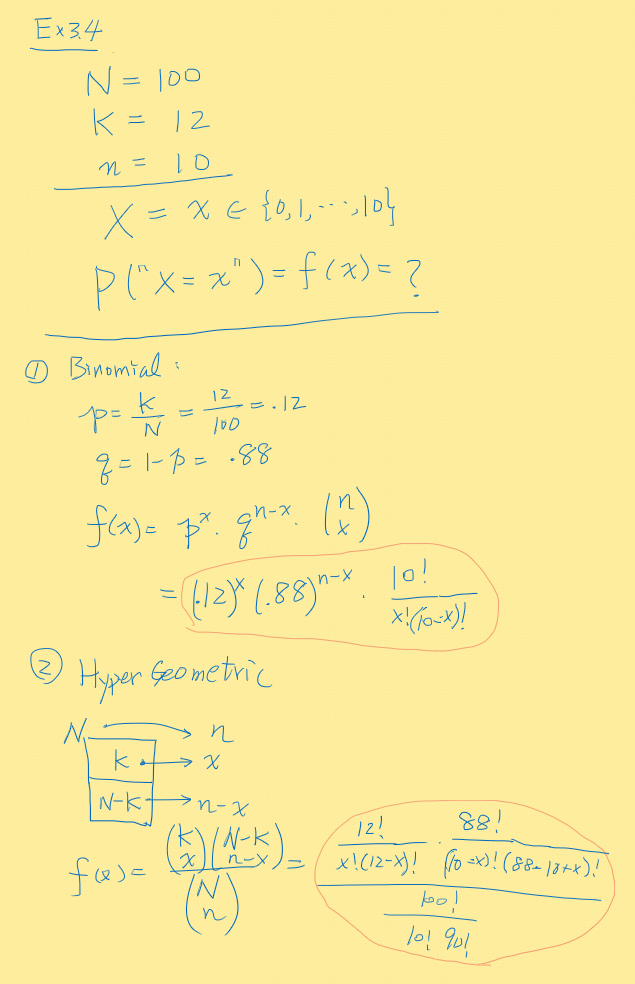 Ex3.4
N = 100
K = 12
n = 10
X = x ∈ {0, 1, ..., 10}
P("X = x") = f(x) = ?
① Binomial :
p = K/N = 12/100 = .12
q = 1 - p = .88
f(x) = p^x · q^(n-x) · (n x)
= (.12)^x (.88)^(n-x) · 10!/(x!(10-x)!)
② Hyper Geometric
N → n
K → x
N-K → n-x
f(x) = (K x)(N-K n-x)/(N n) = (12!/(x!(12-x)!) · 88!/((10-x)!(88-10+x)!))/(100!/(10! 90!))